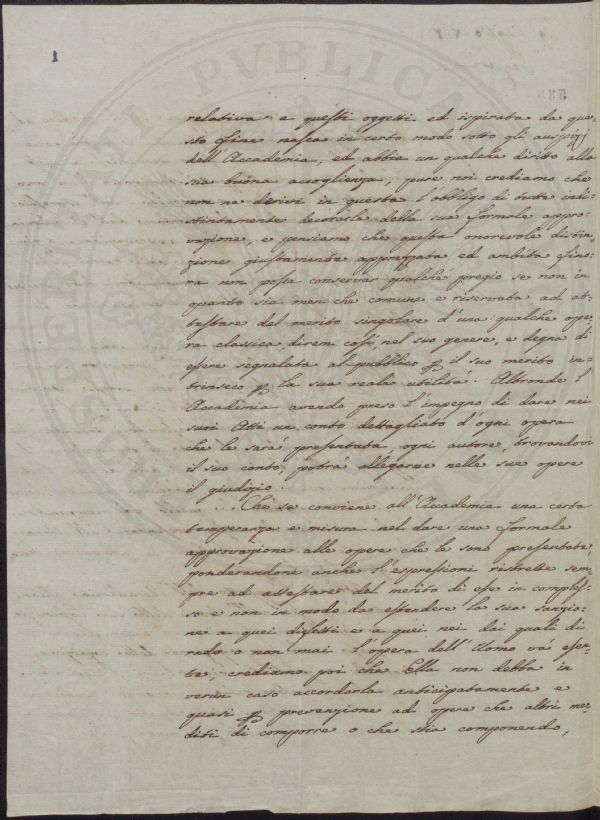 1
relativa a questi oggetti ed ispirata da que
sto fine nasca in certo modo sotto gli auspizj
dell'Accademia, ed abbia un qualche diritto alla
sua buona accoglienza, pure noi crediamo che
non ne derivi in questa l'obbligo di tutte indi-
stintamente decorarle della sua formale appro-
vazione, e pensiamo che questa onorevole distin-
zione giustamente apprezzata ed ambita fino-
ra non possa conservar qualche pregio se non in
quanto sia men che comune e riservata ad at-
testare del merito singolare d'una qualche ope-
ra classica direm così, nel suo genere, e degna di
essere segnalata al pubblico p il suo merito in-
trinseco p la sua reale utilità. Altronde l'
Accademia avendo preso l'impegno di dare nei
suoi Atti un conto dettagliato d'ogni opera
che le sarà presentata ogni autore, trovandovi
il suo conto, potrà allegarne nelle sue opere
il giudizio.
Che se conviene all'Accademia una certa
temperanza e misura nel dare una formale
approvazione alle opere che le sono presentate,
ponderandone anche l'espressioni ristrette sem-
pre ad attestare del merito di esse in comples-
so e non in modo da estendere la sua sanzio-
ne a quei difetti e a quei nei dai quali di
rado o non mai l'opera dell'Uomo và esen-
te, crediamo poi che Ella non debba in
verun caso accordarla anticipatamente e
quasi p prevenzione ad opere che altri me-
diti di comporre o che stia componendo,
MVSEI PVBLICA